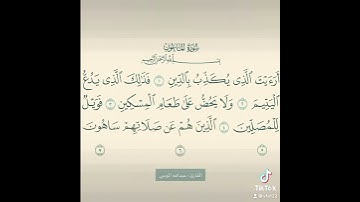 سُورَةُ المَاعُونِ
بِسْمِ اللَّهِ الرَّحْمَٰنِ الرَّحِيمِ
أَرَءَيْتَ الَّذِي يُكَذِّبُ بِالدِّينِ ١ فَذَٰلِكَ الَّذِي يَدُعُّ
الْيَتِيمَ ٢ وَلَا يَحُضُّ عَلَىٰ طَعَامِ الْمِسْكِينِ ٣ فَوَيْلٌ
لِلْمُصَلِّينَ ٤ الَّذِينَ هُمْ عَنْ صَلَاتِهِمْ سَاهُونَ
٥ ٦ ٧
القارئ : عبدالله الموسى
TikTok